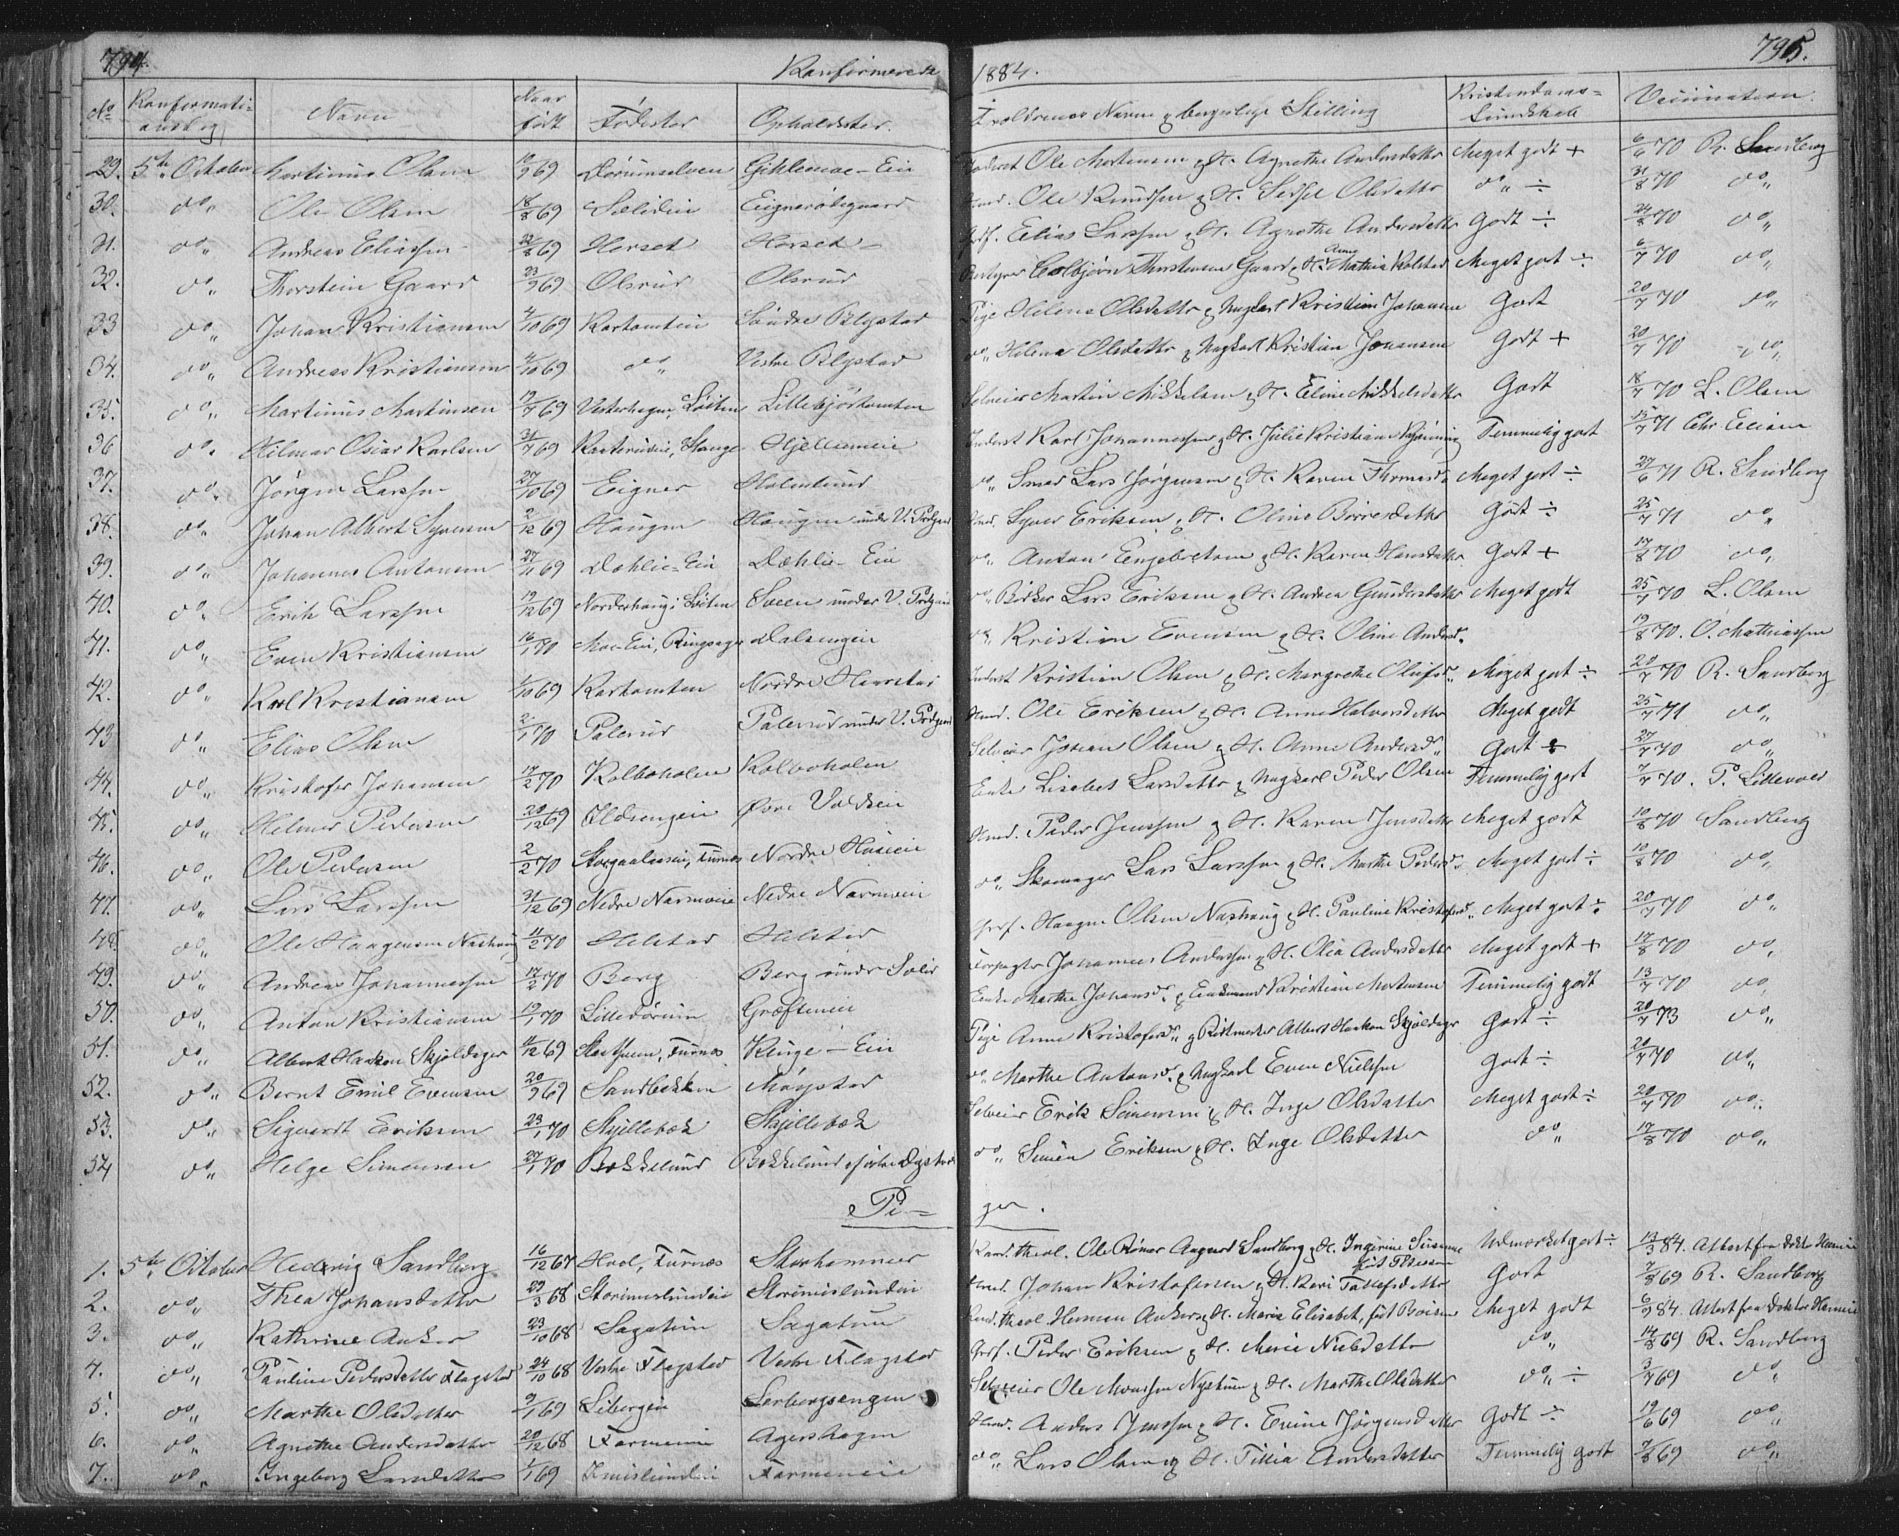 794. Konfirmerede 1884. 795.
No Konfirmationsdag Navn Naar født Fødested Opholdssted Forældrenes Navne og borgerlige Stilling Kristendoms-Kundskab Vaccination.
29. 5te October Martinus Olsen 10/9 69 Dørumselven Inderst Ole Mortensen & H. Agnethe Andersdatter Meget godt + 6/6 70 R. Sandberg
30. do„ Ole Olsen 18/8 69 Hmd. Ole Knudsen & H. Sidsel Olsdatter do„ ÷ 31/8 70 do„
31. do„ Andreas Eliassen 22/8 69 Horset Horset Grdf. Elias Larsen & H. Agnethe Andersdatter Godt ÷ 24/8 70 do„
32. do„ Thorstein Gaard 23/9 69 Olsrud Olsrud Bestyrer Thorstensen Gaard & H. Anne Mathia Kolstad Meget godt ÷ 6/7 70 do„
33 do„ Johan Kristiansen 4/10 69 Kartomten Søndre Blystad Pige Helene Olsdatter & Ungkarl Kristian Johansen Godt 20/7 70 do„
34. do„ Andreas Kristiansen 4/10 69 do„ Vestre Blystad do„ Helene Olsdatter & Ungkarl Kristian Johansen Godt + 20/7 70 do„
35. do„ Martinus Martinsen 19/7 69 Vesterhagen, Løiten Selveier Martin Mikkelsen & H. Eline Mikkelsdatter Godt 18/7 70 L. Olsen
36 do„ Hilmar Oscar Karlsen 31/7 69 Stange Hjellumeie Inderst Karl Johannessen & H. Julie Kristiane Temmelig godt 15/7 71 Chr.
37. do„ Jørgen Larsen 27/10 69 Eigner Holmlund do„ Smed Lars Jørgensen & H. Karen Thomasd. Meget godt ÷ 27/6 71 R. Sandberg
38. do„ Johan Albert Syversen 2/12 69 Haugen Haugen under V. Prdgrd Hmd. Syver Eriksen & H. Oline Børresdatter Godt ÷ 25/7 71 do„
39. do„ Johannes Antonsen 27/11 69 Dæhlie-Eie Dæhlie-Eie do„ Anton Engebretsen & H. Karen Hansdatter Godt + 17/8 70 do„
40. do„ Erik Larsen 19/12 69 Norderhaug i Løiten Sveen under V. Prdgrd do„ Bødker Lars Eriksen & H. Andrea Gundersdatter Meget godt 25/7 70 L. Olsen
41. do„ Even Kristiansen 16/1 70 Mo-Eie, Ringsager Dalsengeie do„ Kristian Evensen & H. Oline Andersd. 19/8 70. O. Mathiassen
42. do„ Karl Kristiansen 1/10 69 Kartomten Nordre Haarstad Inderst Kristian Olsen & H. Margrethe Olufsd. Meget godt ÷ 20/7 70 R. Sandberg
43 do„ Elias Olsen 2/1 70 Palerud Palerud under V. Prdgrd Hmd. Ole Eriksen & H. Anne Halvorsdatter Meget godt 25/7 71 do„
44. do„ Kristofer Johansen 17/2 70 Kolboholen Kolboholen Selveier Johan Olsen & H. Anne Andersd„ Godt ÷ 27/7 70 do„
45. do„ Helmer Pedersen 20/12 69 Ildsengeie Øvre Voldseie Enke Lisabet Larsdatter & Ungkarl Peder Olsen Temmelig godt 7/7 70. P. Lilleeng
46. do„ Ole Pedersen 2/2 70 Furnes Nordre Hmd. Peder Jensen & H. Karen Jensdatter Meget godt 10/8 70 Sandberg
47. do„ Lars Larsen 31/12 69 Nedre Narmoeie Nedre Narmoeie do„ Skomager Lars Larsen & H. Marthe Pedersd. Meget godt ÷ 10/8 70 do„
48. do„ Ole Haagensen Nashaug 11/2 70 Helstad Helstad Grdf. Haagen Olsen Nashaug & H. Pauline Kristofersd. Meget godt ÷ 20/7 70 do„
49. do„ Andreas Johannessen 17/2 70 Berg Berg under Forpagter Johannes Andersen & H. Olea Andersdatter Meget godt + 17/8 70 do„
50. do„ Anton Kristiansen 19/1 70 Lilledørum Grefteneie Enke Marthe Johansd. & Enkemand Kristian Mortensen Temmelig godt 13/7 70 do„
51. do„ Albert Haakon Skjoldager 9/12 69 Furnes Kinge-Eie Pige Anne Kristofersd„ & Ritmester Albert Haakon Skjoldager Godt ÷ 20/7 73 do„
52. do„ Bernt Emil Evensen 20/9 69 Sandbekken Møystad do„ Marthe Antonsd. & Ungkarl Even Nielsen Godt ÷ 20/7 70 do„
53. do„ Sigvardt Eriksen 23/1 70 Skjellebæk Skjellebæk Selveier Erik Simensen & H. Inge Olsdatter Meget godt ÷ 20/7 70 do„
54 do„ Helge Simensen 27/1 70 Bekkelund Bekkelund do„ Simen Eriksen & H. Inge Olsdatter do„ 17/8 70 do„
Pi-ger.
1. 5te October Hedevig Sandberg 16/12 67 Hvol, Furnes Storhammer Kand. theol. Ole Rømer Aagaard Sandberg & H. Ingerine Susanne født Udmærket godt ÷ 13/3 84. Attest fra Doktor
2. do„ Thea Johansdatter 29/3 68 Storimislundeie Storimislundeie Hmd. Johan Kristofersen & H. Kari Godt 7/8 69 R. Sandberg
3. do„ Kathrine Anker 23/10 68 Sagatun Sagatun Kand. theol Herman Anker & H. Marie Elisabet, født Boisen Meget godt 6/9 84. Attest fra Doktor
4. do„ Pauline Pedersdatter Flagstad 24/10 68 Vestre Flagstad Vestre Flagstad Grdf. Peder Eriksen & H. Marie Nielsdatter do„ 14/8 69 R. Sandberg
5. do„ Marthe Olsdatter 9/1 69 Libergeie Lerbergsengen Selveier Ole Monsen Nystuen & H. Marthe Olsdatter do„ ÷ 3/7 69 do„
6. do„ Agnethe Andersdatter 20/12 68 Farmeneie Agershagen Hmd. Anders Jensen & H. Evine Jørgensdatter Godt ÷ 19/6 69 do„
7. do„ Ingeborg Larsdatter 1/1 69 Imislundeie Farmeneie do„ Lars Olsen & H. Tillia Andersdatter Temmelig godt 7/8 69 do„